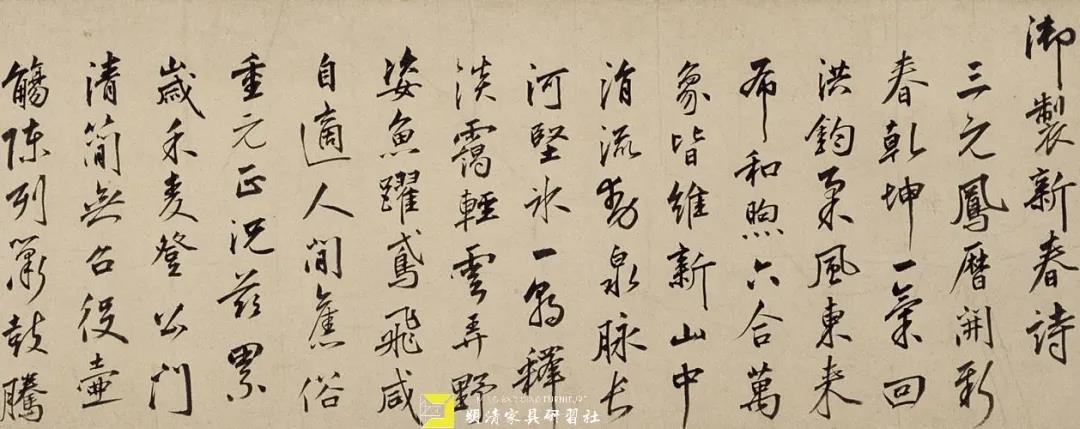 御製新春詩
三元鳳曆開新
春乾坤一氣回
洪鈞柔風東来
布和煦六合萬
象皆維新山中
涓流動泉脉长
河堅氷一朝釋
淡靄輕雲弄野
姿魚躍鳶飛咸
自適人間舊俗
重元正況茲累
歲禾麦登公門
清簡無召役壺
觴陳列簫鼓騰
明清家具研習社